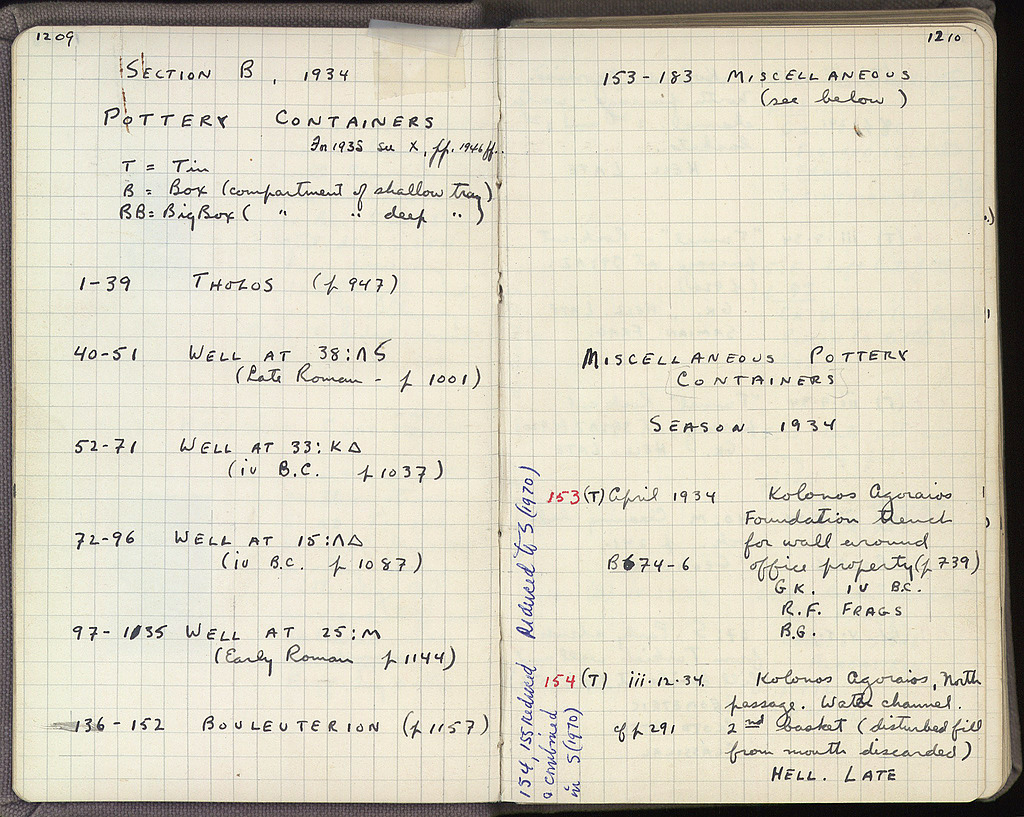 1209
SECTION B, 1934
POTTERY CONTAINERS
In 1935 see X, pp. 1946 ff..
T = Tin
B = Box (compartment of shallow tray)
BB = Big Box ( " " deep " )
1-39 THOLOS (p 947)
40-51 WELL AT 38:ΛS
(Late Roman - p 1001)
52-71 WELL AT 33:ΚΔ
(iv B.C. p 1037)
72-96 WELL AT 15:ΛΔ
(iv B.C. p 1087)
97-135 WELL AT 25:M
(Early Roman p 1144)
136-152 BOULEUTERION (p 1157)
1210
153-183 MISCELLANEOUS
(see below)
MISCELLANEOUS POTTERY
CONTAINERS
SEASON 1934
153 (T) April 1934 Kolonos Agoraios
Foundation trench
for wall around
B 674-6 office property (p 739)
GK. IV B.C.
R.F. FRAGS
B.G.
Reduced to S (1970)
154 (T) iii.12.34. Kolonos Agoraios, North
passage. Water channel.
cf p 291 2nd basket (disturbed fill
from mouth discarded)
HELL. LATE
154, 155 reduced
& combined
in S (1970)